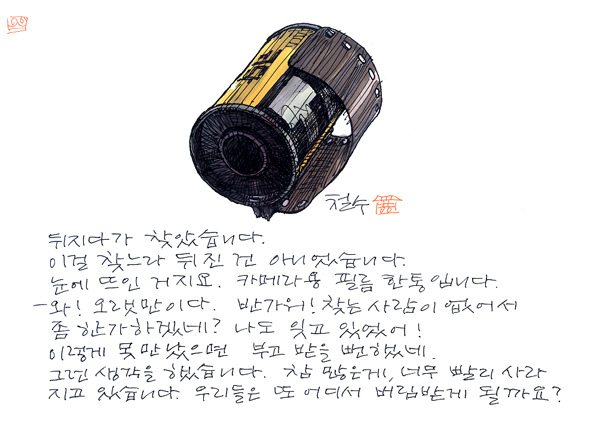 철수
뒤지다가 찾았습니다.
이걸 찾느라 뒤진 건 아니었습니다.
눈에 뜨인 거지요. 카메라용 필름 한통입니다.
-와! 오랫만이다. 반가워! 찾는 사람이 없어서
좀 한가하겠네? 나도 잊고 있었어!
이렇게 못 만났으면 부고 받을 뻔 했네.
그런 생각을 했습니다. 참 많은게, 너무 빨리 사라
지고 있습니다. 우리들은 또 어디서 버림받게 될까요?